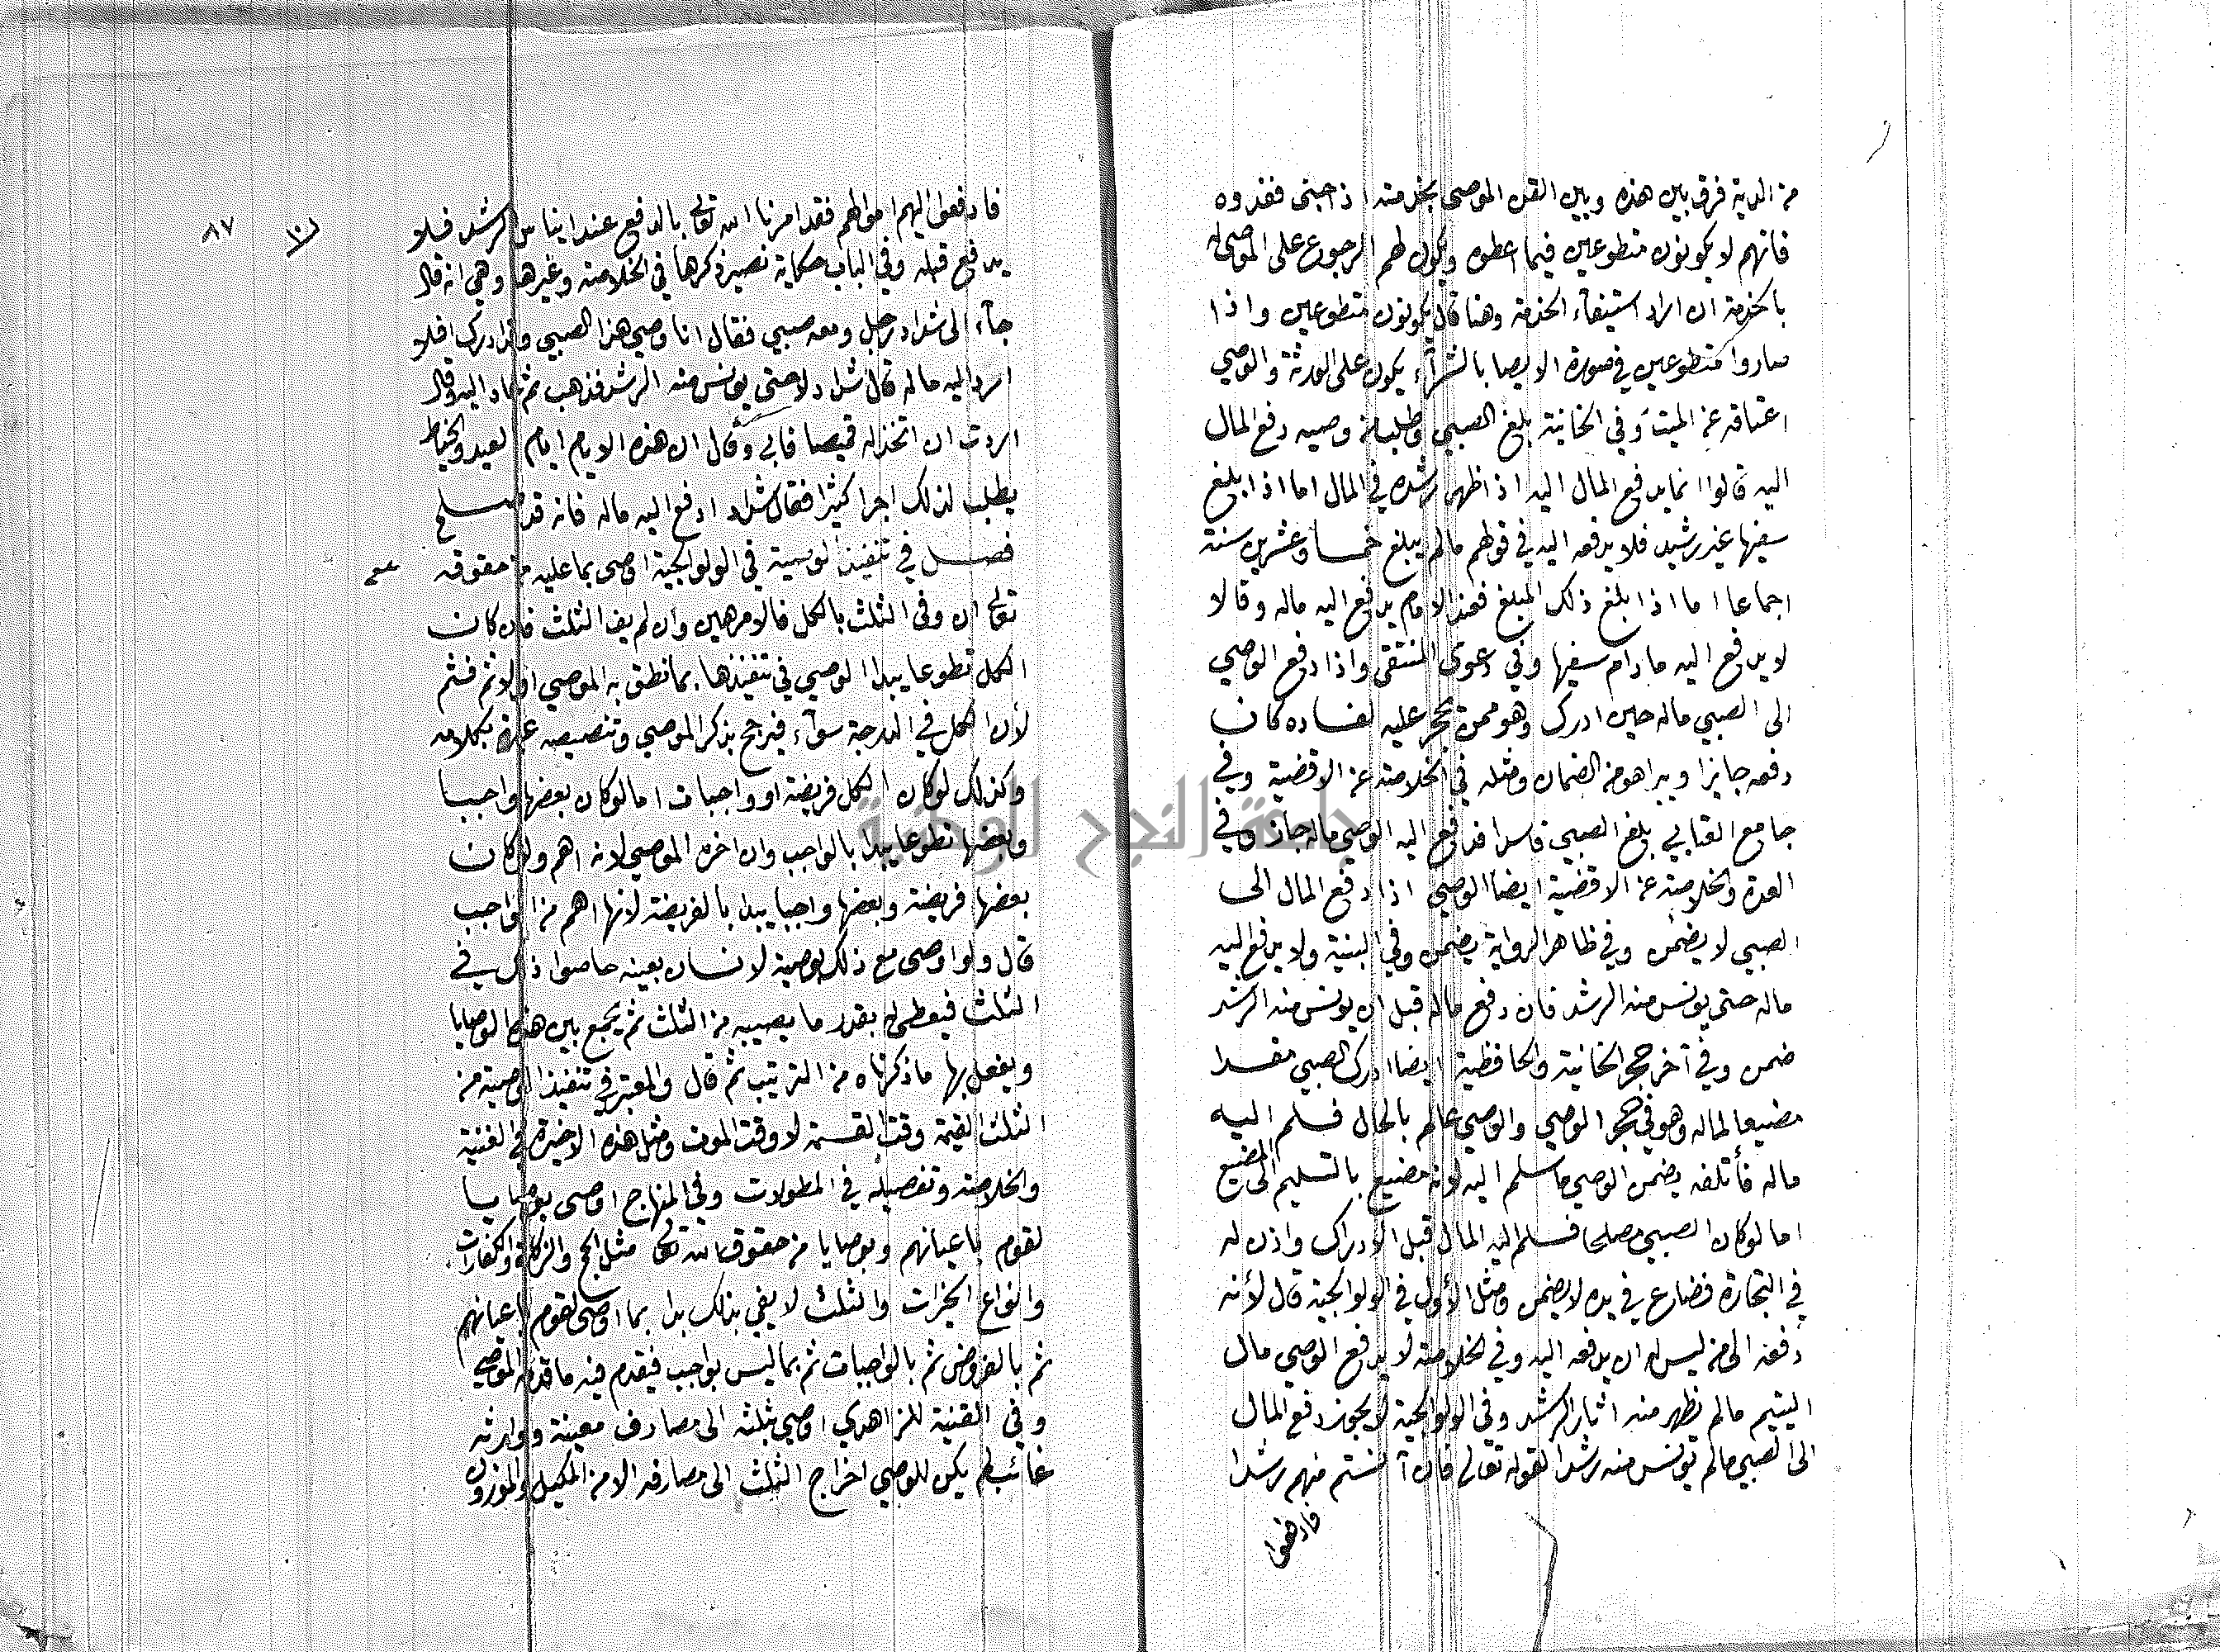 من الدية فرق بين هذه وبين القن الموصى بخدمته اذ جنى ففدوه
فانهم لا يكونون متطوعين فيما اعطوه ويكون لهم الرجوع على الموصى له
بالخدمة ان اراد استيفآء الخدمة وهنا قال يكونون متطوعين واذا
صاروا متطوعين في صورة الايصا بالشرآء يكون على الورثة والوصي
اعتاقه عن الميت وفي الخانية بلغ الصبي وطلب من وصيه دفع المال
اليه قالوا انما يدفع المال اليه اذا ظهر رشده في المال اما اذا بلغ
سفيها غير رشيد فلا يدفعه اليه في قولهم مالم يبلغ خمسا وعشرين سنة
اجماعا اما اذا بلغ ذلك المبلغ فعند الامام يدفع اليه ماله وقالا
لا يدفع اليه مادام سفيها وفي دعوى المنتقى واذا دفع الوصي
الى الصبي ماله حين ادرك وهو ممن يحجر عليه لفساده كان
دفعه جايزا ويبرا هو من الضمان ومثله في الخلاصة عن الاقضية وفي
جامع العتابي بلغ الصبي فاسدا فدفع اليه الوصي ماله جاز وفي
العدة والخلاصة عن الاقضية ايضا الوصي اذا دفع المال الى
الصبي لا يضمن وفي ظاهر الرواية يضمن وفي البنية ولا يدفع اليه
ماله حتى يونس منه الرشد فان دفع ماله قبل ان يونس منه الرشد
ضمن وفي آخر حجر الخانية والحافظية ايضا ادرك الصبي مفسدا
مضيعا لماله وهو في حجر الوصي والوصي عالم بالحال فسلم اليه
ماله فأتلفه يضمن الوصي ما سلم اليه لانه مضيع بالتسليم الى المضيع
اما لو كان الصبي مصلحا فسلم اليه المال قبل الادراك واذن له
في التجارة فضاع في يده لا يضمن ومثل الأول في الولوالجية قال لأنه
دفعه الى من ليس له ان يدفعه اليه وفي الخلاصة لا يدفع الوصي مال
اليتيم مالم يظهر منه اثار الرشد وفي الولوالجية لا يجوز دفع المال
الى الصبي مالم يونس منه رشدا لقوله تعالى فان آنستم منهم رشدا
فادفعوا
٨٧
فادفعوا اليهم اموالهم فقد امرنا الله تعالى بالدفع عند ايناس الرشد فلا
يدفع قبله وفي الباب حكاية نصير ذكرها في الخلاصة وغيرها وهي انه قال
جآء الى شداد رجل ومعه صبي فقال انا وصي هذا الصبي وقد ادرك افلا
ارد اليه ماله قال شداد لا حتى يونس منه الرشد فذهب ثم عاد اليه وقال
اردت ان اتخذ له قميصا فابى وقال ان هذه الايام ايام العيد والخياط
يطلب لذلك اجرا كثيرا فقال شداد ادفع اليه ماله فانه قد صلح
فصل في تنفيذ الوصية في الولوالجية اوصى بما عليه من حقوقه
تعالى ان وفى الثلث بالكل فالامر هين وان لم يف الثلث فان كان
الكل تطوعا يبدا الوصي في تنفيذها بما نطق به الموصي اولا ثم فثم
لأن الكل في الدرجة سوآء فيرجح بذكر الموصي وتنصيصه عليه بكلامه
وكذلك لو كان الكل فريضة او واجبات اما لو كان بعضها واجبا
وبعضها تطوعا يبدا بالواجب وان اخره الموصي لانه اهم ولو كان
بعضها فريضة وبعضها واجبا يبدا بالفريضة لانها اهم من الواجب
قال ولو اوصى مع ذلك بوصية لانسان بعينه حاصوا ذلك في
الثلث فيعطى له بقدر ما يصيبه من الثلث ثم يجمع بين هذه الوصايا
ويفعل بها ما ذكرناه من الترتيب ثم قال والمعتبر في تنفيذ الوصية من
الثلث القيمة وقت القسمة لا وقت الموت ومثل هذه الاخيرة في الغنية
والخلاصة وتفصيله في المطولات وفي المنهاج اوصى بوصايا
لقوم باعيانهم وبوصايا من حقوق الله تعالى مثل الحج والزكاة والكفارات
وانواع الخيرات والثلث لا يفي بذلك بدا بما اوصى لقوم باعيانهم
ثم بالفروض ثم بالواجبات ثم بما ليس بواجب فيقدم فيه ما قدمه الموصي
وفي القنية للزاهدي اوصى بثلثه الى مصارف معينة ووارثه
غائب لم يكن للوصي اخراج الثلث الى مصارفه الا من المكيل والموزون
جامعة النجاح الوطنية